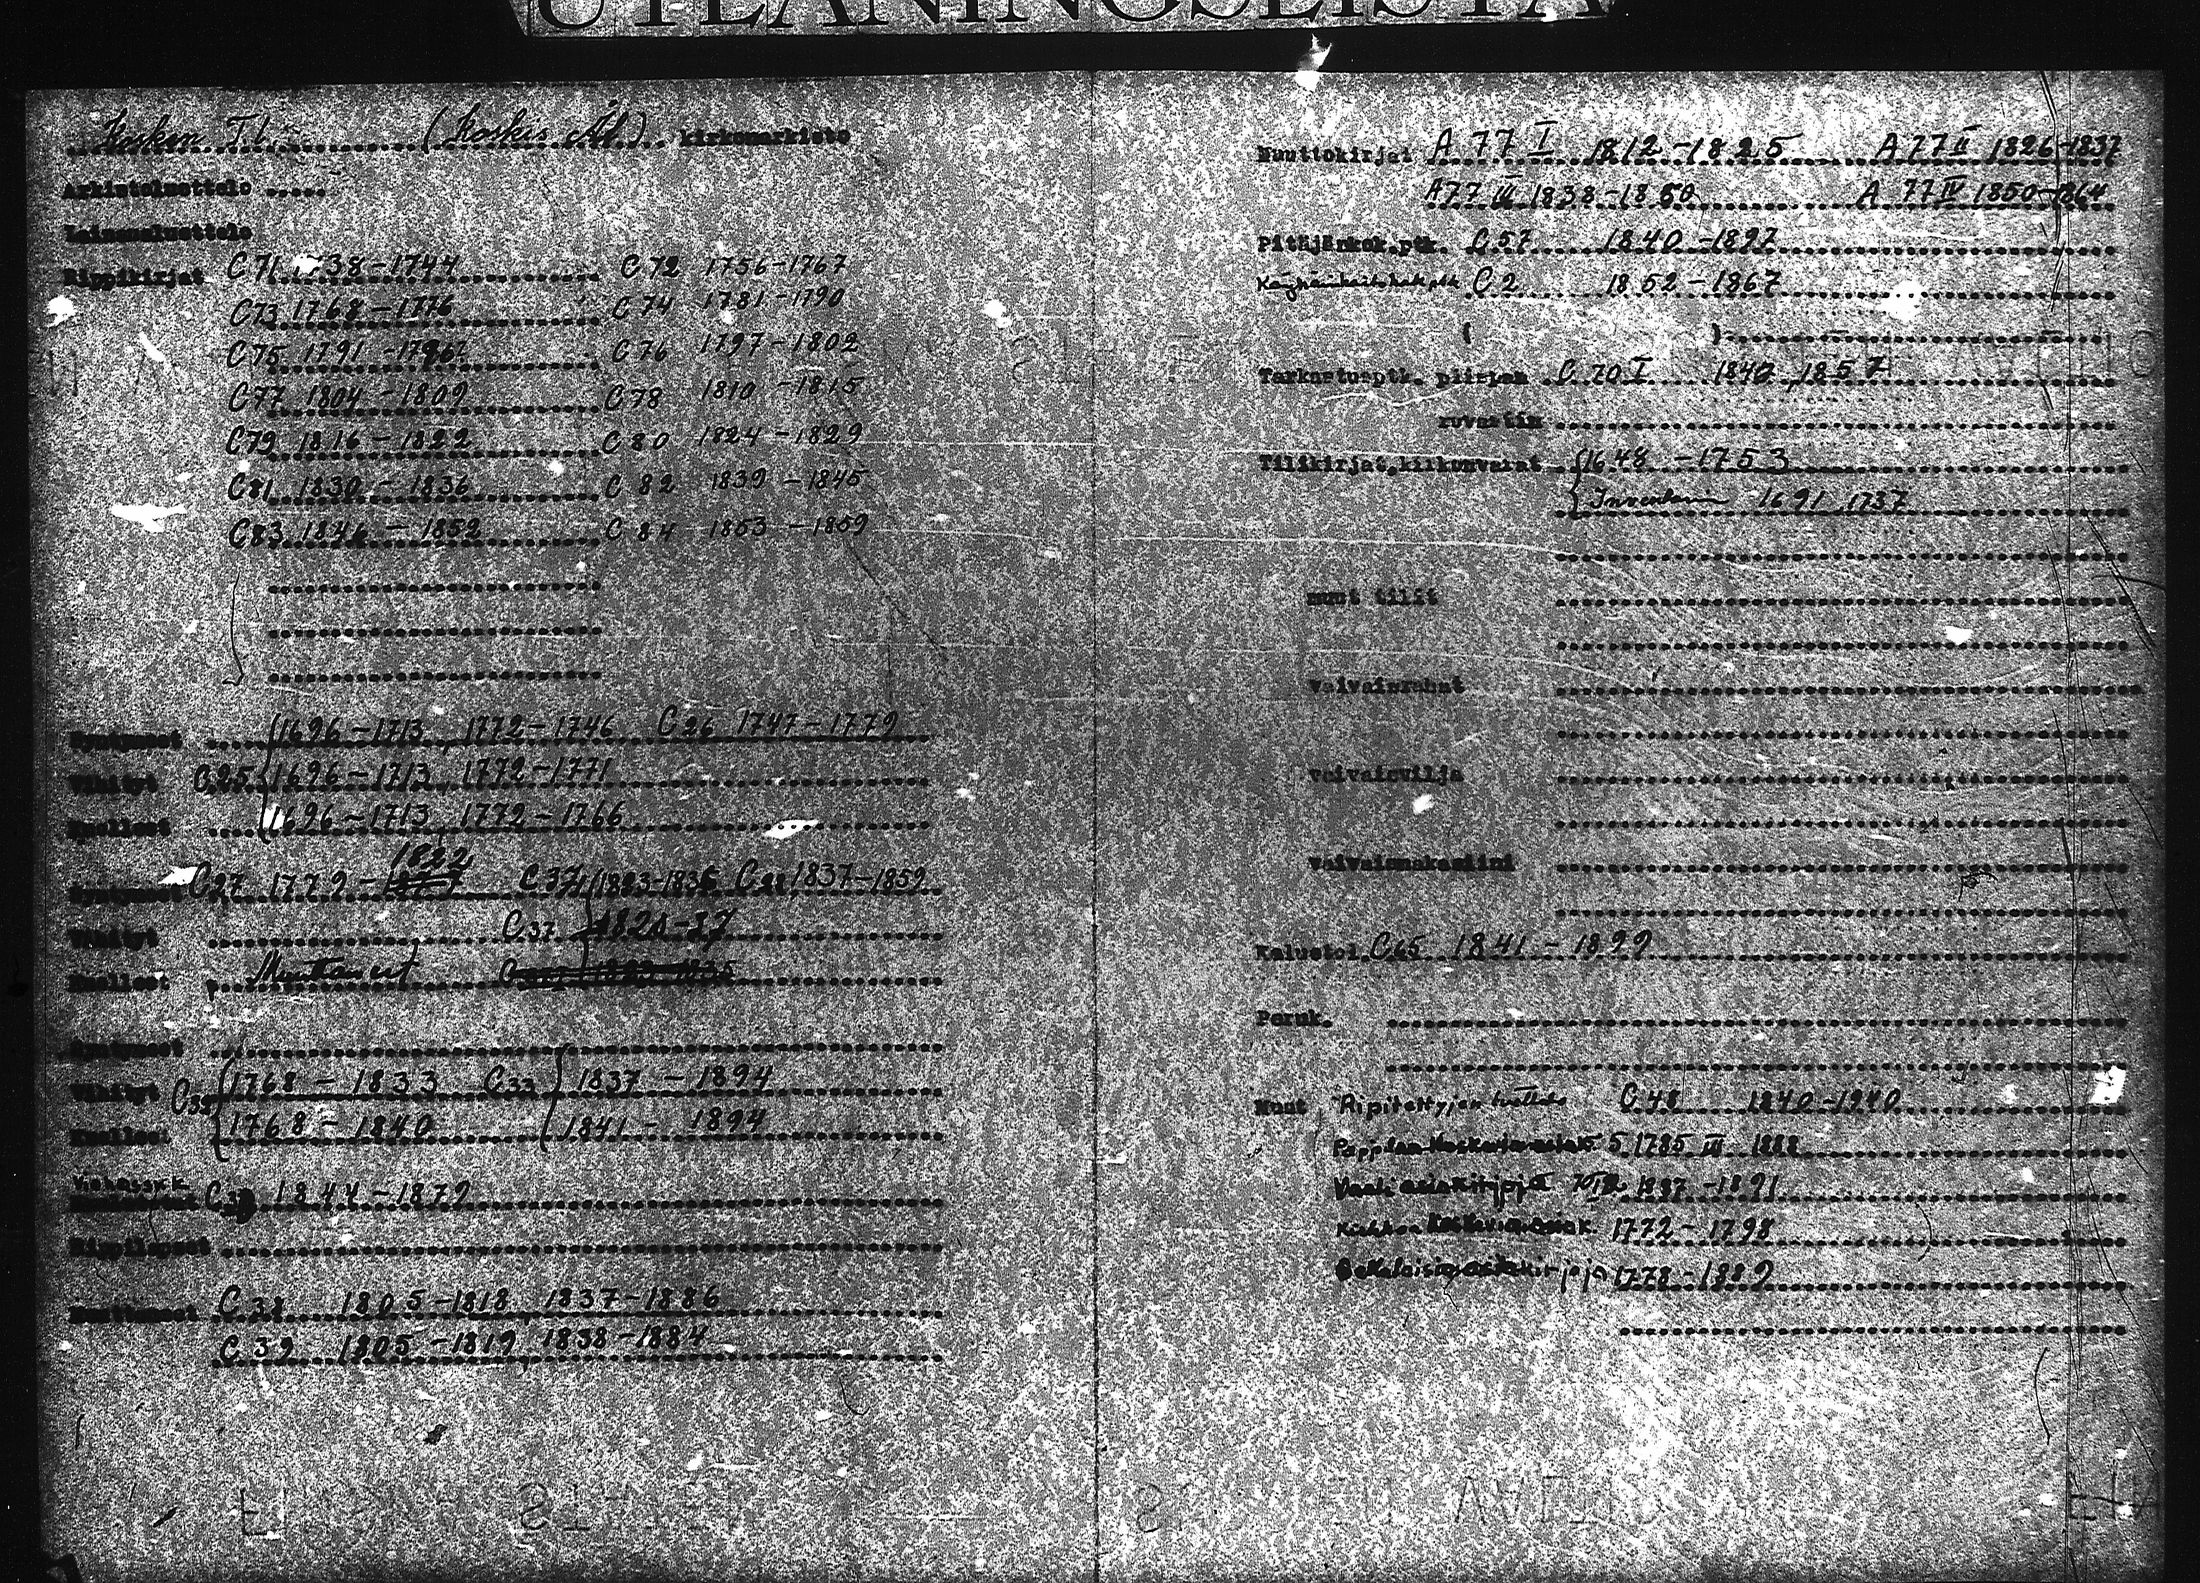 UTLÅNINGSLISTA
Kosken Tl. (Koskis Åbl) kirkonarkisto
Arkistoluettelo .....
Lainausluettelo
Rippikirjat C 71 1738-1744 C 72 1756-1767
C 73 1768-1776 C 74 1781-1790
C 75 1791-1796 C 76 1797-1802
C 77 1804-1809 C 78 1810-1815
C 79 1816-1822 C 80 1824-1829
C 81 1830-1836 C 82 1839-1845
C 83 1846-1852 C 84 1853-1859
Syntyneet 1696-1713, 1772-1746 C 26 1747-1779
Vihityt C 25 1696-1713, 1772-1771
Kuolleet 1696-1713, 1772-1766
1822
Syntyneet C 27 1779- C 37 1823-1836 C 28 1837-1859
Vihityt C 37 1823-37
Kuolleet
Syntyneet
Vihityt C 33 1768-1833 C 33 1837-1894
Kuolleet 1768-1840 1841-1894
C 1844-1879
Rippilapset
Muuttaneet C 38 1805-1818, 1837-1886
C 39 1805-1819, 1838-1884
Muuttokirjat A 77 I 1812-1825 A 77 II 1826-1837
A 77 III 1838-1850 A 77 IV 1850-1864
Pitäjänkok.ptk. C 57 1840-1897
C 2 1852-1867
( )
Tarkastusptk. piispan C 70 I 1840, 1857
rovastin
Tilikirjat, kirkonvarat 1648-1753
Inventarium 1691, 1737
muut tilit
vaivaisrahat
vaivaisvilja
vaivaismakasiini
Kalustol. C 65 1841-1899
Peruk.
Muut Ripitettyjen luettelo C 48 1840-1940
Pappilan 1785 III 1888
Vaali asiakirjoja 1887-1891
Kirkkoa koskevia asiak. 1772-1798
Sekalaisia asiakirjoja 1778-1889